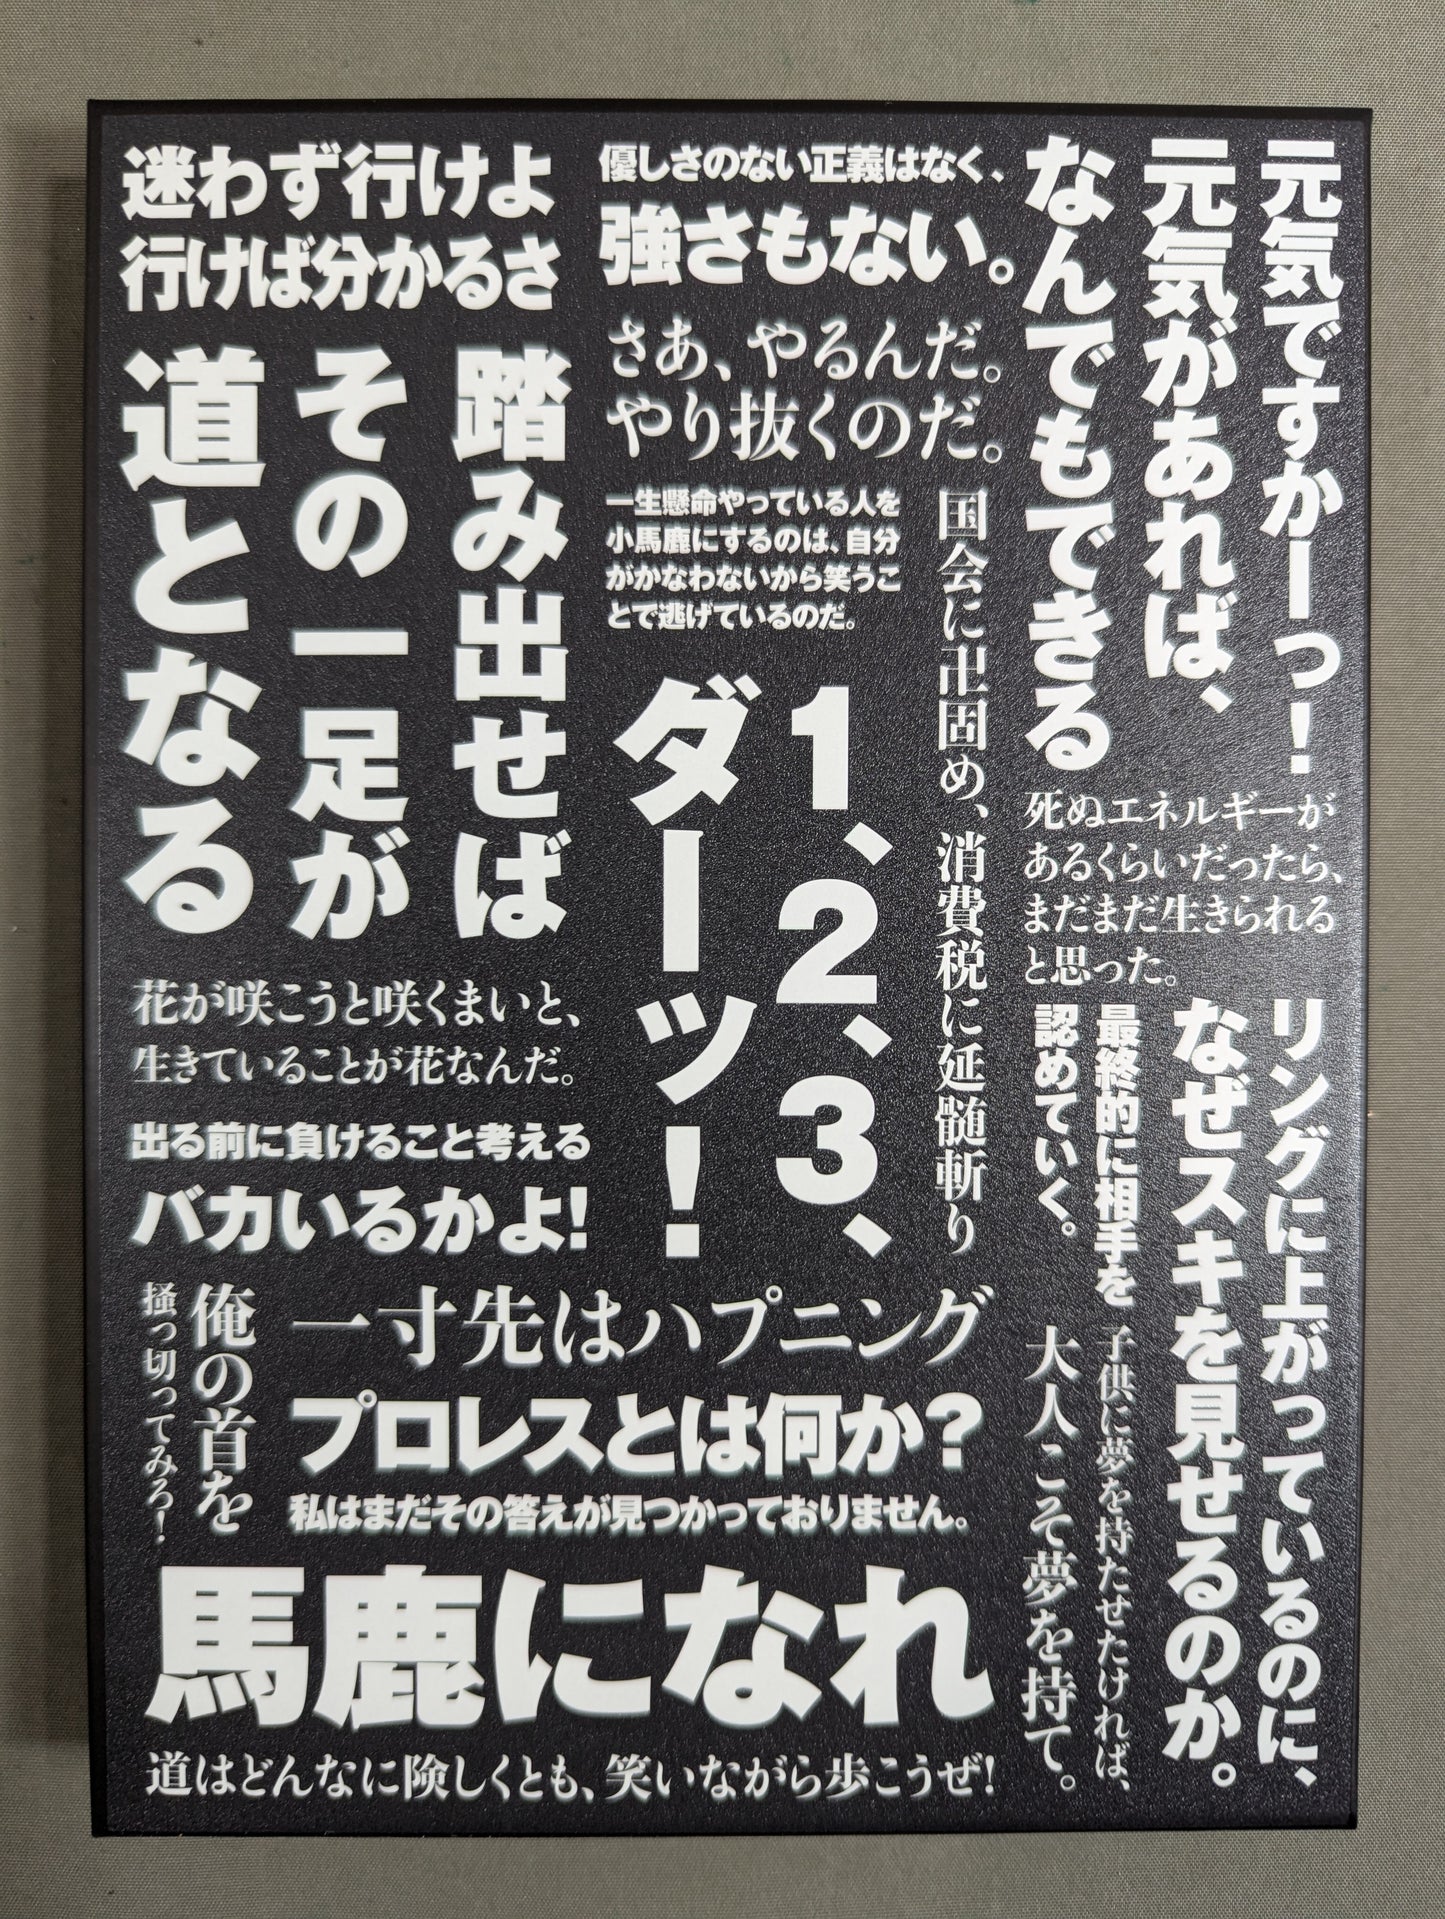 元気ですかーっ!
元気があれば、
なんでもできる
優しさのない正義はなく、
強さもない。
さあ、やるんだ。
やり抜くのだ。
迷わず行けよ
行けば分かるさ
踏み出せば
その一足が
道となる
一生懸命やっている人を
小馬鹿にするのは、自分
がかなわないから笑うこ
とで逃げているのだ。
国会に卍固め、消費税に延髄斬り
1、2、3、
ダーッ!
死ぬエネルギーが
あるくらいだったら、
まだまだ生きられる
と思った。
花が咲こうと咲くまいと、
生きていることが花なんだ。
出る前に負けること考える
バカいるかよ!
リングに上がっているのに、
なぜスキを見せるのか。
最終的に相手を
認めていく。
子供に夢を持たせたければ、
大人こそ夢を持て。
俺の首を
掻っ切ってみろ!
一寸先はハプニング
プロレスとは何か?
私はまだその答えが見つかっておりません。
馬鹿になれ
道はどんなに険しくとも、笑いながら歩こうぜ!